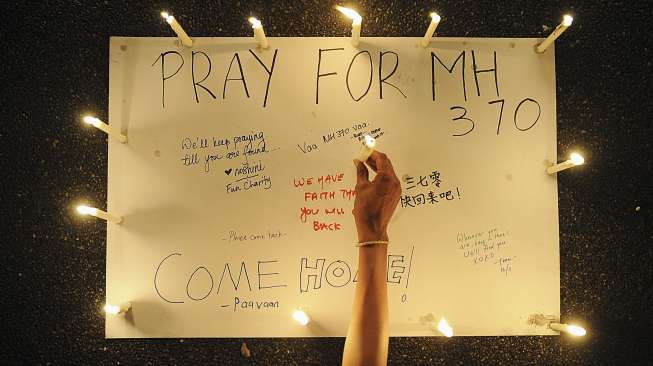 PRAY FOR MH
370
We'll keep praying
till you are found...
♥ noshini
Fun Charity
Vaa MH370 vaa.
WE HAVE
FAITH THA
YOU WILL
BACK
三七零
快回来吧!
- Please come back -
COME HOME!
- Paavaan
Wherever you
are, hang in there!
We'll find you
XOXO